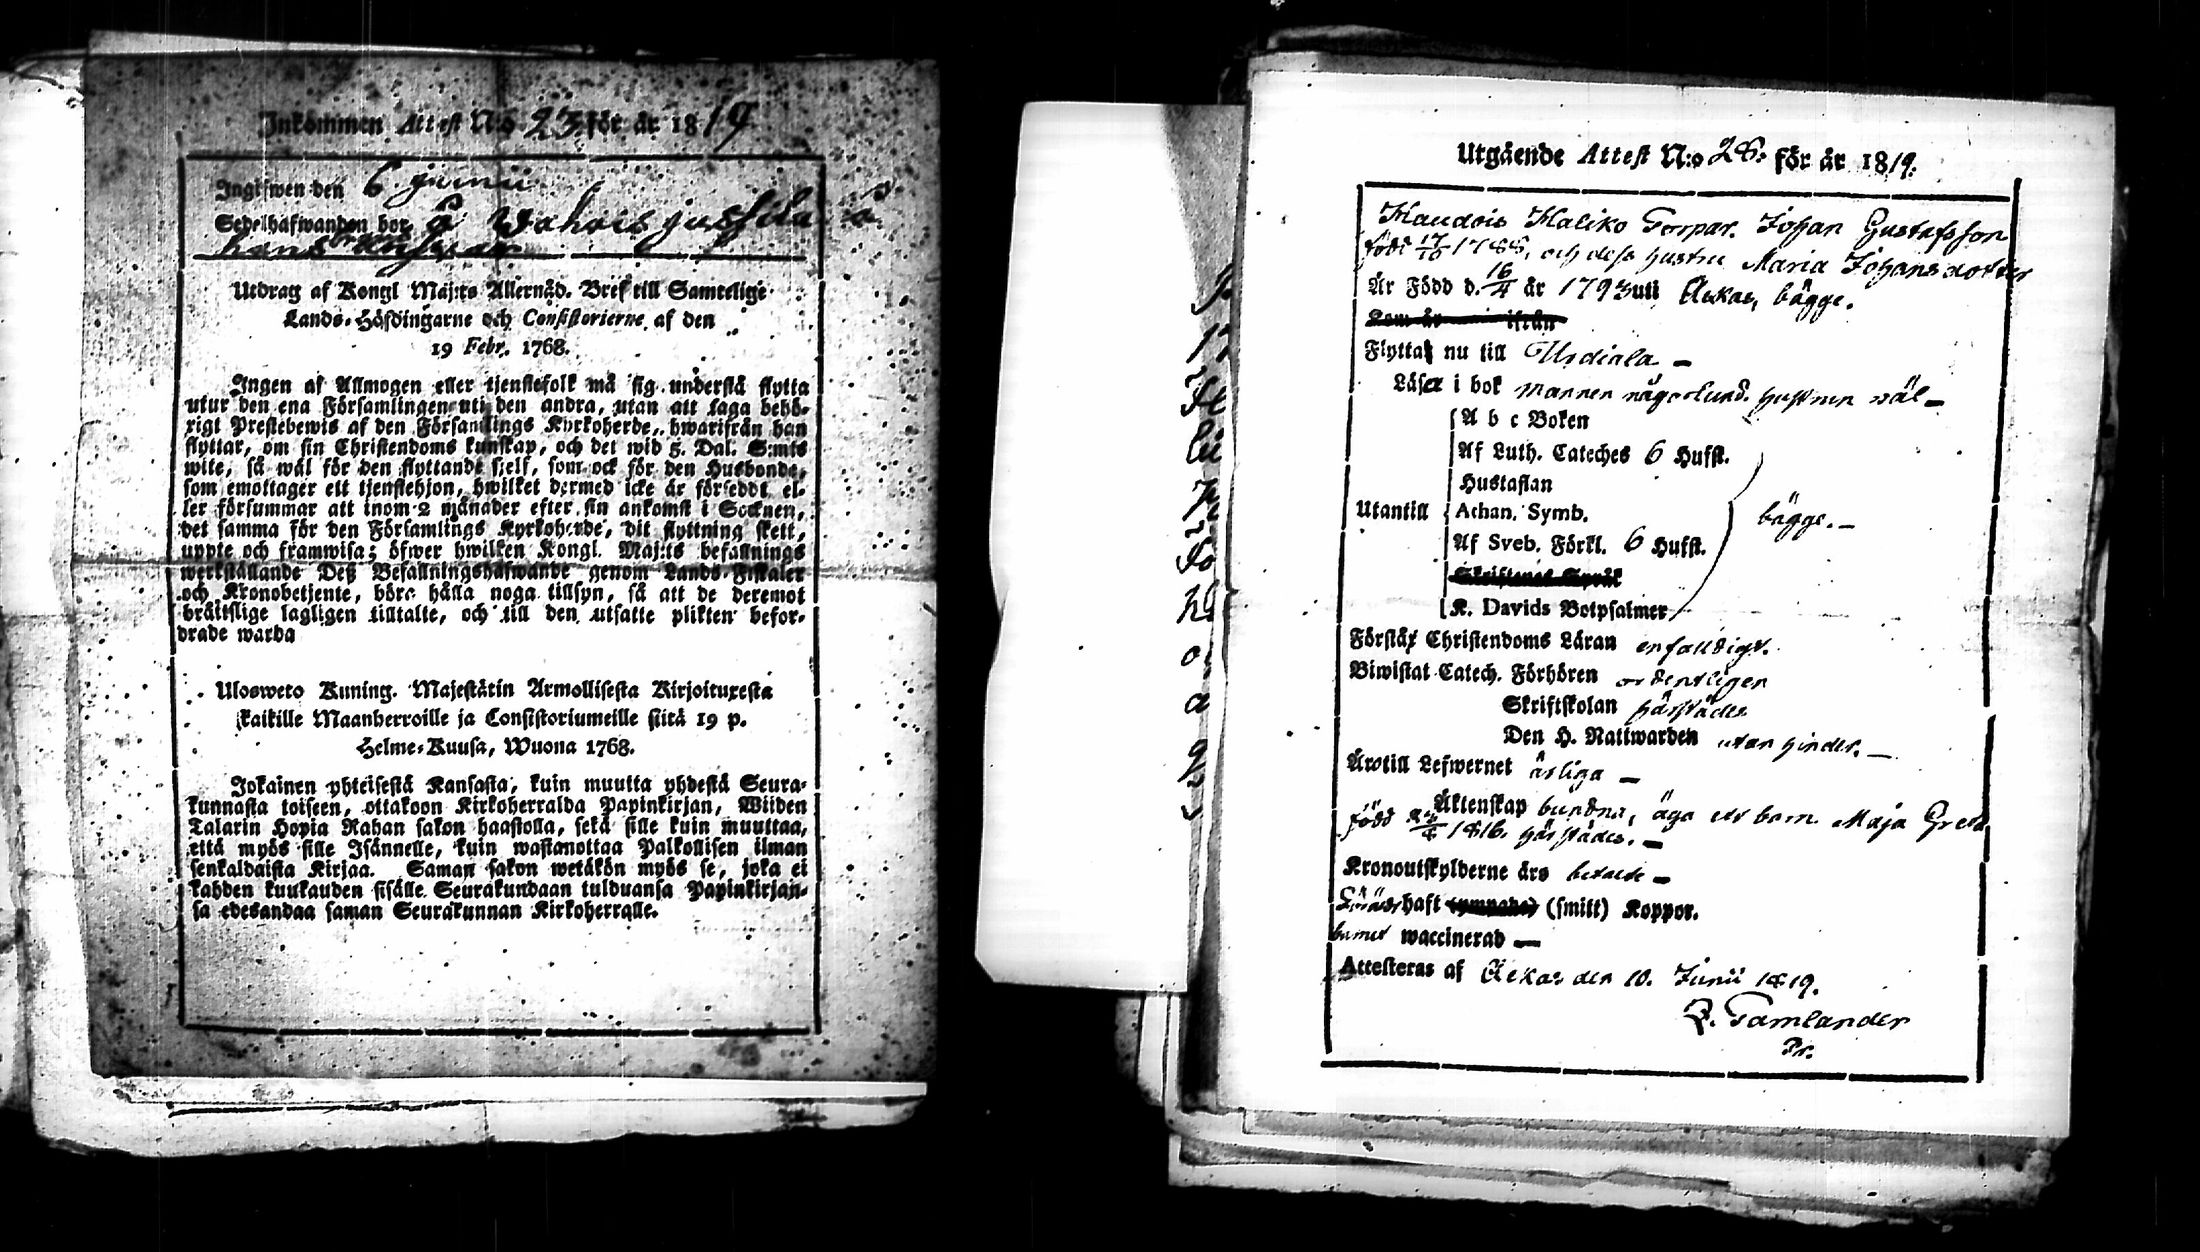 Inkommen Attest N:o 23 för år 1819
Ingifwen den 6 junii
Sedelhafwanden bor å Wahais jussila
hans
Utdrag af Kongl Maj:ts Allernåd. Bref till Samtelige
Lands-Höfdingarne och Consistorierne af den
19 Febr. 1768.
Ingen af Allmogen eller tjenstefolk må sig understå flytta
utur den ena Församlingen uti den andra, utan att taga behö-
rigt Prestebewis af den Församlings Kyrkoherde, hwarifrån han
flyttar, om sin Christendoms kunskap, och det wid 5. Dal. S:mts
wite, så wäl för den flyttande sjelf, som ock för den Husbonde,
som emottager ett tjenstehjon, hwilket dermed icke är försedt el-
ler försummar att inom 2 månader efter sin ankomst i Socknen,
det samma för den Församlings Kyrkoherde, dit flyttning skett,
uppte och framwisa; öfwer hwilken Kongl. Maj:ts befallnings
werkställande Deß Befallningshafwande genom Lands-Fiskaler
och Kronobetjente, böra hålla noga tillsyn, så att de deremot
bråttslige lagligen tilltalte, och till den utsatte plikten befor-
drade warda
Ulosweto Kuning. Majestätin Armollisesta Kirjoituxesta
kaikille Maanherroille ja Consistoriumeille siitä 19 p.
Helme-Kuusa, Wuona 1768.
Jokainen yhteisestä Kansasta, kuin muutta yhdestä Seura-
kunnasta toiseen, ottakoon Kirkoherralda Papinkirjan, Wiiden
Talarin Hopia Rahan sakon haastolla, sekä sille kuin muuttaa,
että myös sille Isännelle, kuin wastanottaa Palkollisen ilman
senkaldaista Kirjaa. Saman sakon wetäkön myös se, joka ei
kahden kuukauden sisälle Seurakundaan tulduansa Papinkirjan-
sa edesandaa saman Seurakunnan Kirkoherralle.
Utgående Attest N:o 28. för år 1819.
Haudois Kaliko Torpar. Johan Gustafsson
född 17/10 1788, och dess hustru Maria Johansdotter
Är Född d. 16/4 år 1793 uti Ackas, bägge.
Kom år ifrån
Flytta nu till Urdiala —
Läsa i bok mannen någorlund. hustrun wäl —
A b c Boken
Af Luth. Cateches 6 Hufst.
Hustaflan
Utantill Athan. Symb.
bägge. —
Af Sveb. Förkl. 6 Hufst.
Skriftenes Språk
K. Davids Botpsalmer
Förstår Christendoms Läran enfalldigt.
Biwistat Catech. Förhören ordentligen
Skriftskolan härstädes
Den H. Nattwarden utan hinder. —
Äro till Lefwernet ärliga —
Äktenskap bundna, äga ett barn Maja Greta
född 1816. härstädes. —
Kronoutskylderne äro betalte —
haft (ympade) (smitt) Koppor.
barnet waccinerad —
Attesteras af Ackas den 10. Junii 1819.
Tamlander
Pr.